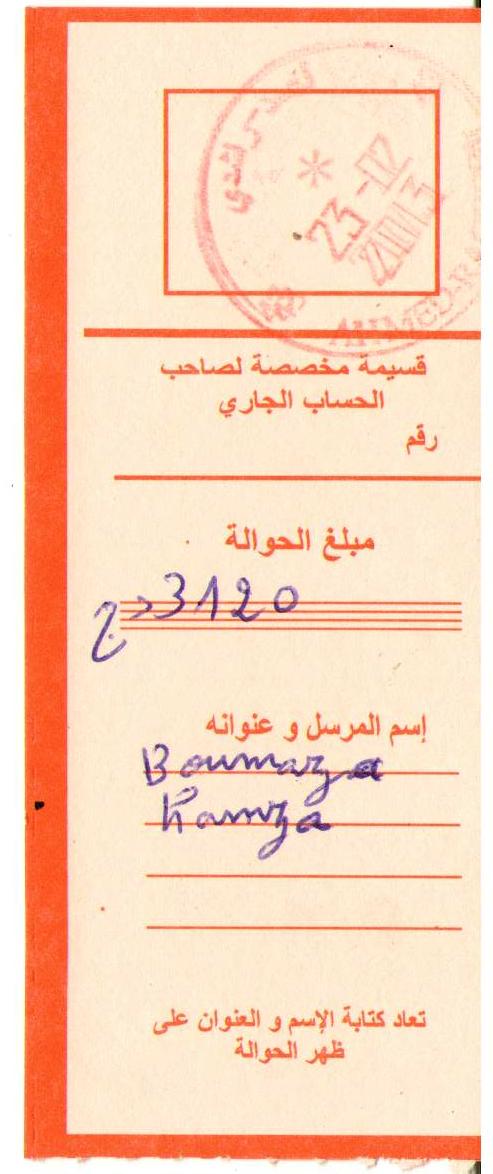 23-12
2013
قسيمة مخصصة لصاحب
الحساب الجاري
رقم
مبلغ الحوالة
3120 دج
إسم المرسل و عنوانه
Boumaza
Hamza
تعاد كتابة الإسم و العنوان على
ظهر الحوالة